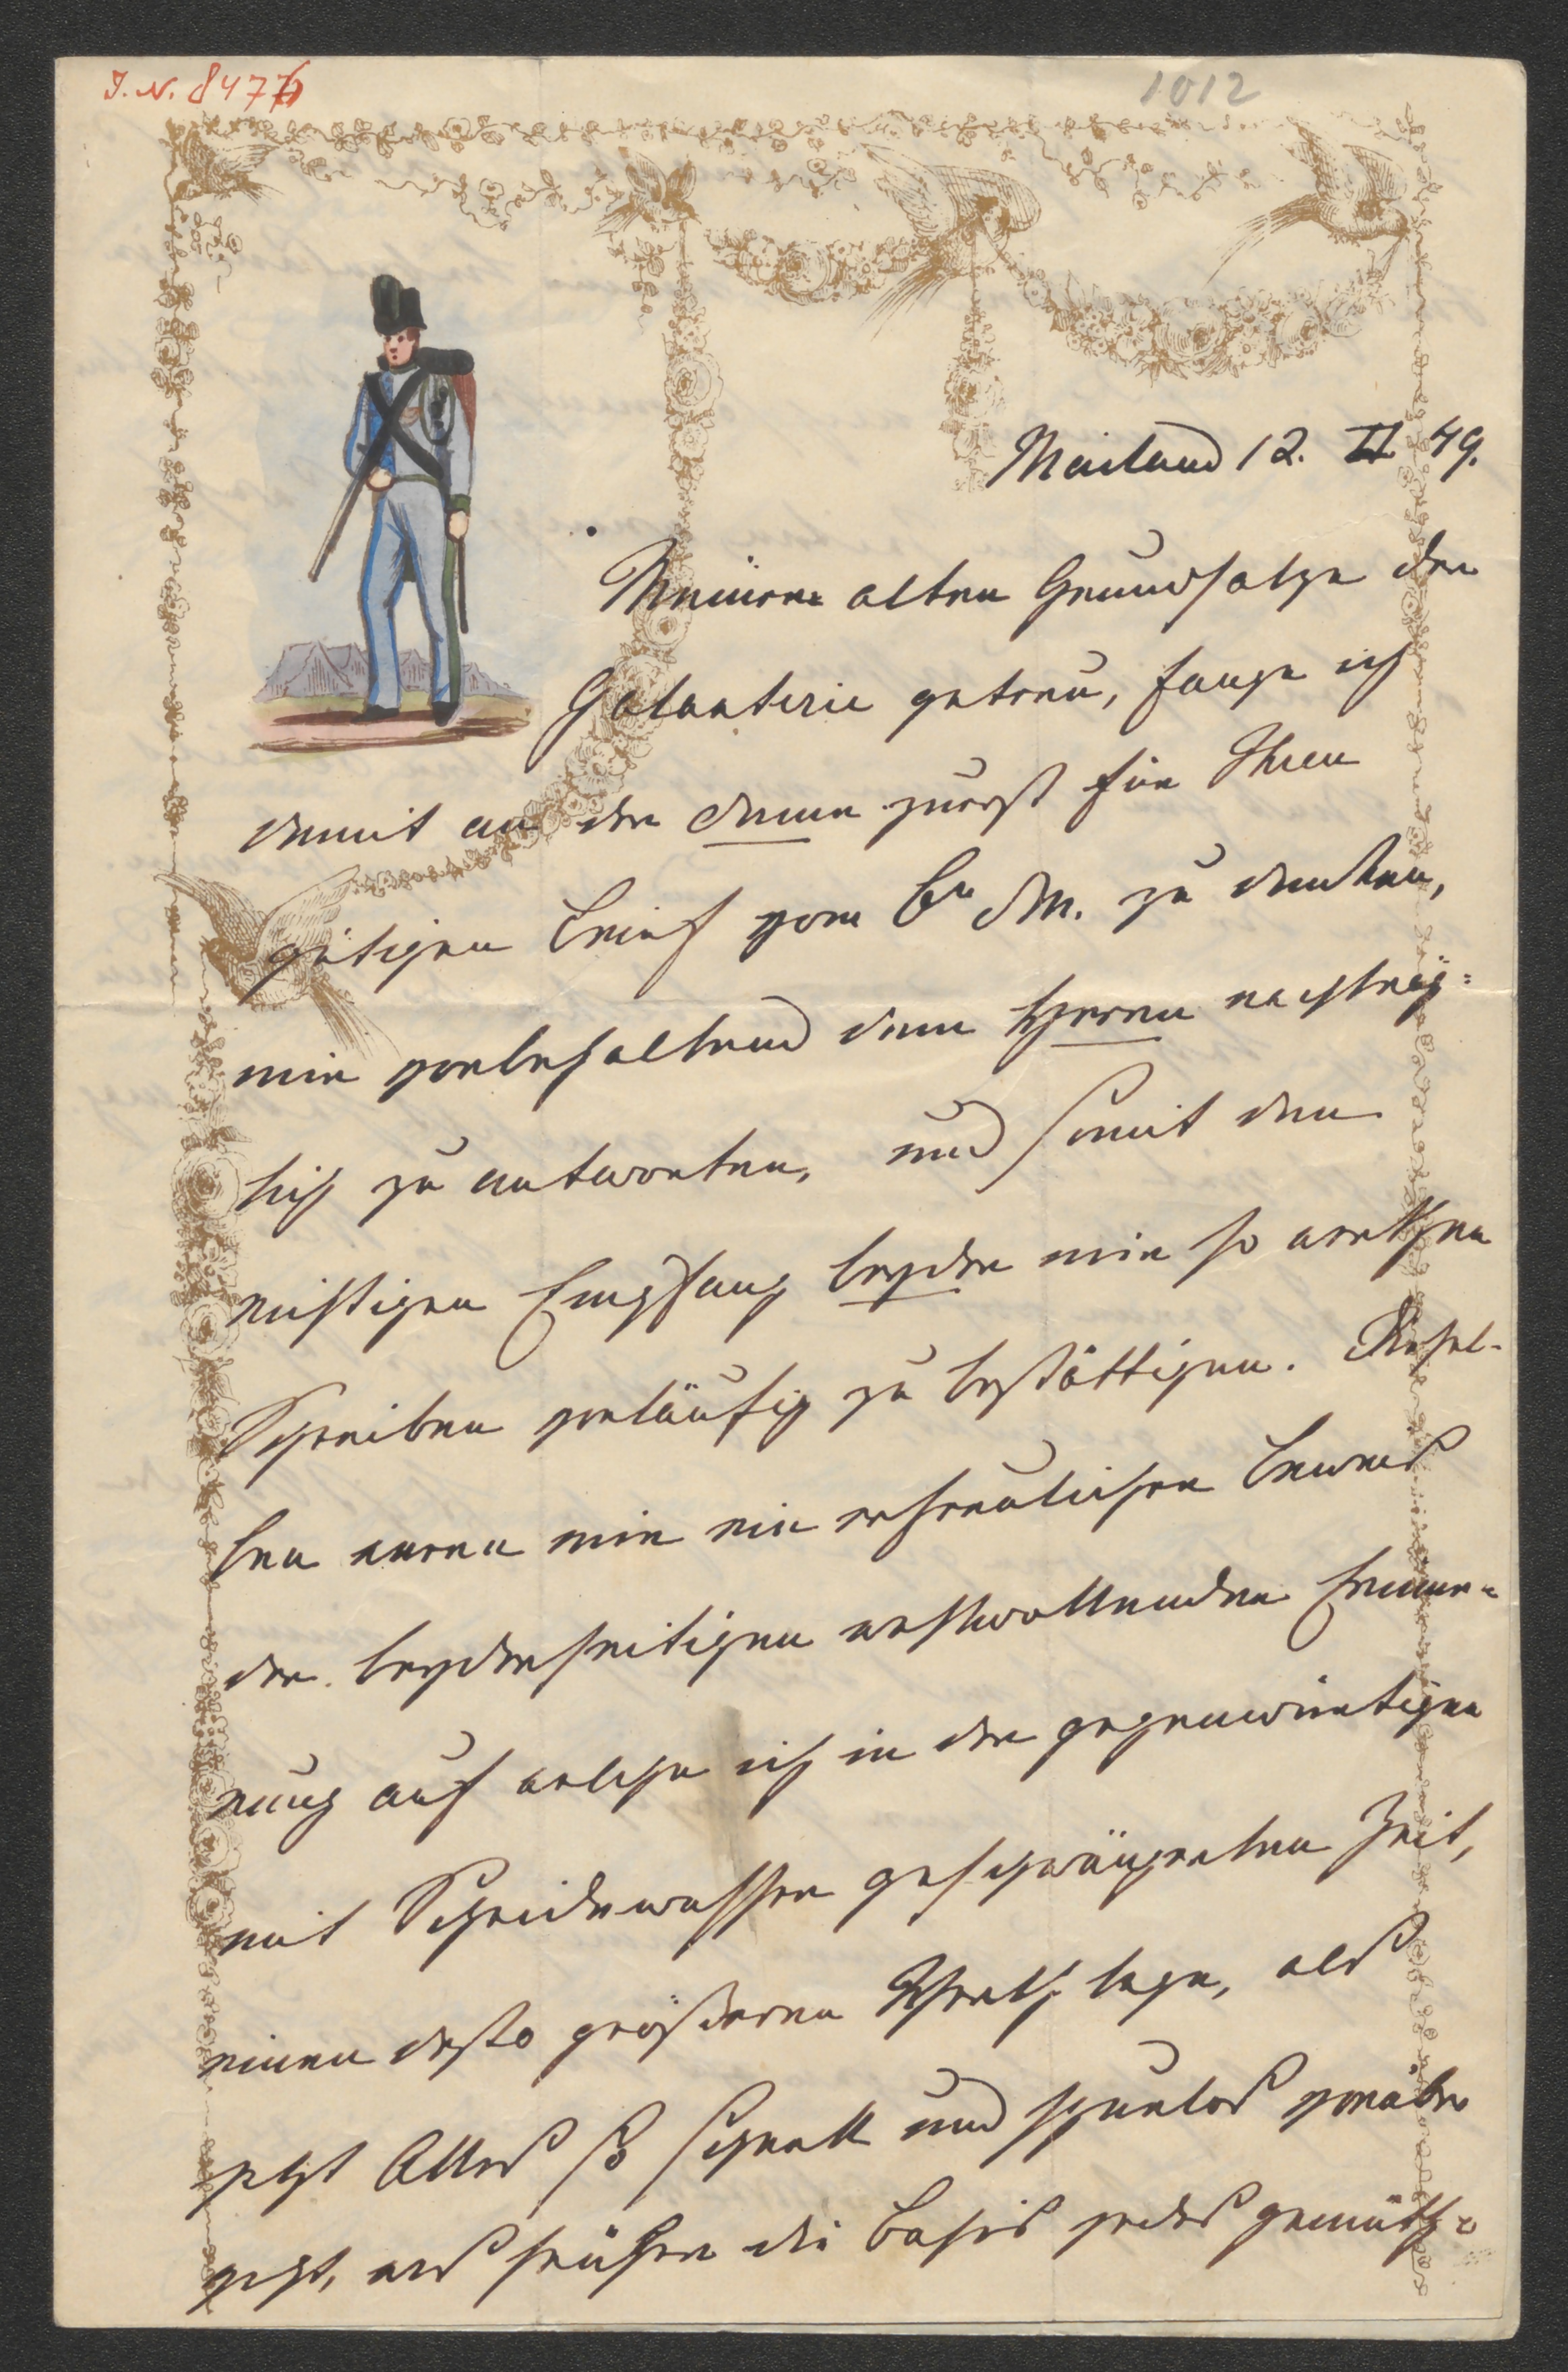 I. N. 8477
1012
Mailand 12. II 49.
Meinem alten Grundsatze der
Galanterie getreu, fange ich
damit an der Dame zuerst für Ihren
gütigen Brief vom 6n d M. zu danken,
mir vorbehaltend dem Herrn nachträg=
lich zu antworten, und somit den
richtigen Empfang beyder mir so werthen
Schreiben vorläufig zu bestättigen. Diesel-
ben waren mir ein erfreulicher Beweis
der beyderseitigen wohlwollenden Erinne=
rung auf welche ich in der gegenwärtigen
mit Scheidewasser geschwängerten Zeit,
einen desto größeren Werth lege, als
jetzt Alles so schnell und spurlos vorüber
geht, was früher die Basis jedes gemüth=